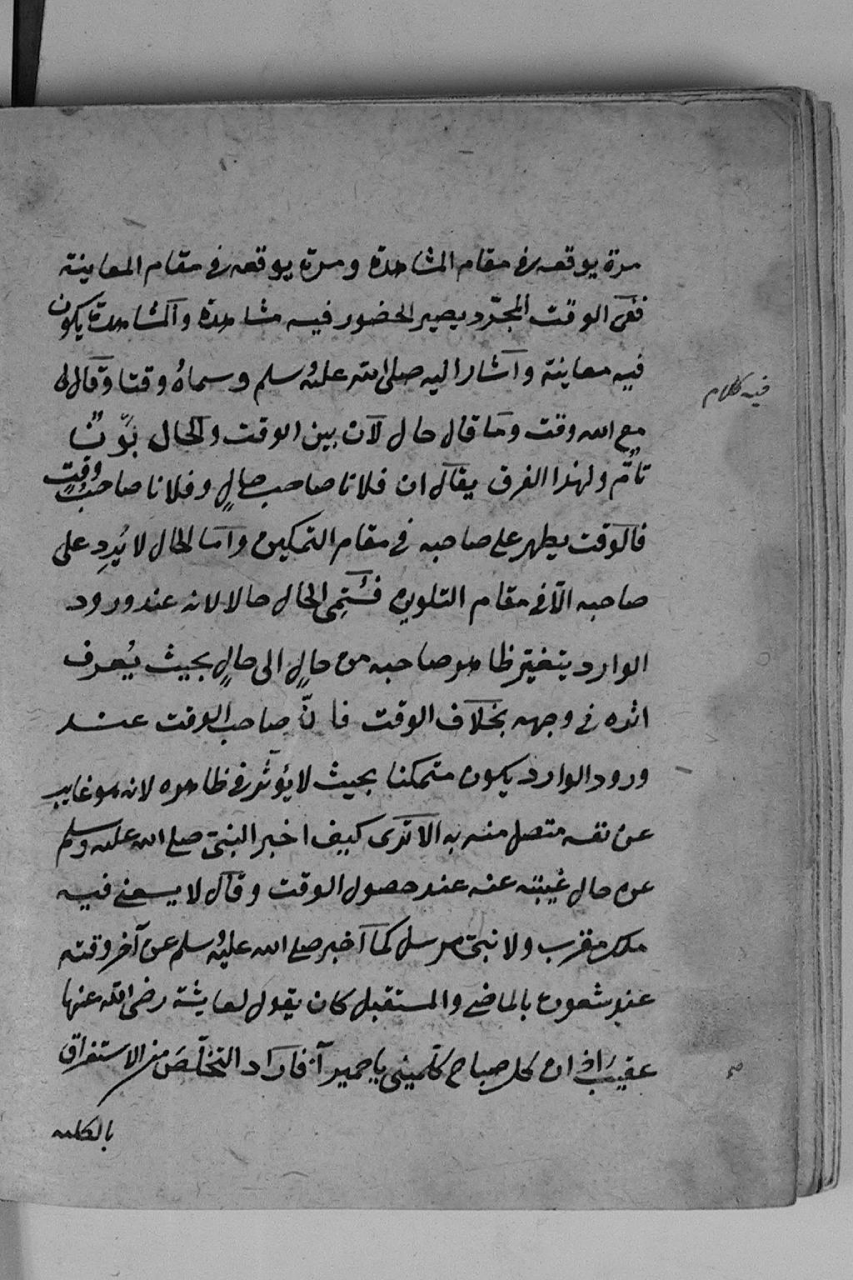 مرة يوقعه في مقام المشاهدة ومرة يوقعه في مقام المعاينة
ففى الوقت المجرّد يصير الحضور فيه مشاهدة والمشاهدة يكون
فيه معاينة واشار اليه صلى الله عليه وسلم وسماهُ وقتا وقال لى
فيه كلام
مع الله وقت وما قال حال لان بين الوقت والحال بَوْنًا
تامّ ولهذا الفرق يقال ان فلانا صاحب حالٍ وفلانا صاحب وقتٍ
فالوقت يظهر على صاحبه في مقام التمكين واما الحال لا يُرد على
صاحبه الّا في مقام التلوين فسُمّى الحال حالا لانه عند ورود
الوارد يتغيّر ظاهر صاحبه من حالٍ الى حالٍ بحيث يُعرف
اثره في وجهه بخلاف الوقت فانّ صاحب الوقت عند
ورود الوارد يكون متمكنا بحيث لا يؤثر في ظاهره لانه هو غايب
عن نفسه متصل منه به الا ترى كيف اخبر النبىّ صلى الله عليه وسلم
عن حال غيبته عنه عند حصول الوقت وقال لا يسعنى فيه
ملك مقرب ولا نبىّ مرسل كما اخبر صلى الله عليه وسلم عن آخر وقته
عند شعوره بالماضى والمستقبل كان يقول لعايشة رضى الله عنها
عقيب اذان كل صباح كلّمينى يا حميرآء فاراد التخلّص من الاستغراق
بالكلمه